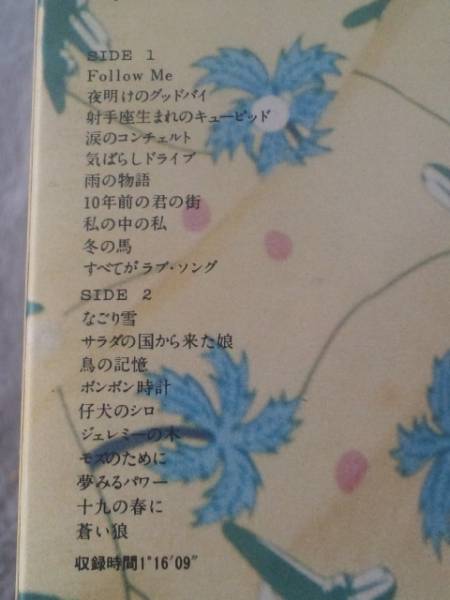 SIDE 1
Follow Me
夜明けのグッドバイ
射手座生まれのキューピッド
涙のコンチェルト
気ばらしドライブ
雨の物語
10年前の君の街
私の中の私
冬の馬
すべてがラブ・ソング
SIDE 2
なごり雪
サラダの国から来た娘
鳥の記憶
ボンボン時計
仔犬のシロ
ジェレミーの木
モズのために
夢みるパワー
十九の春に
蒼い狼
収録時間1°16′09″